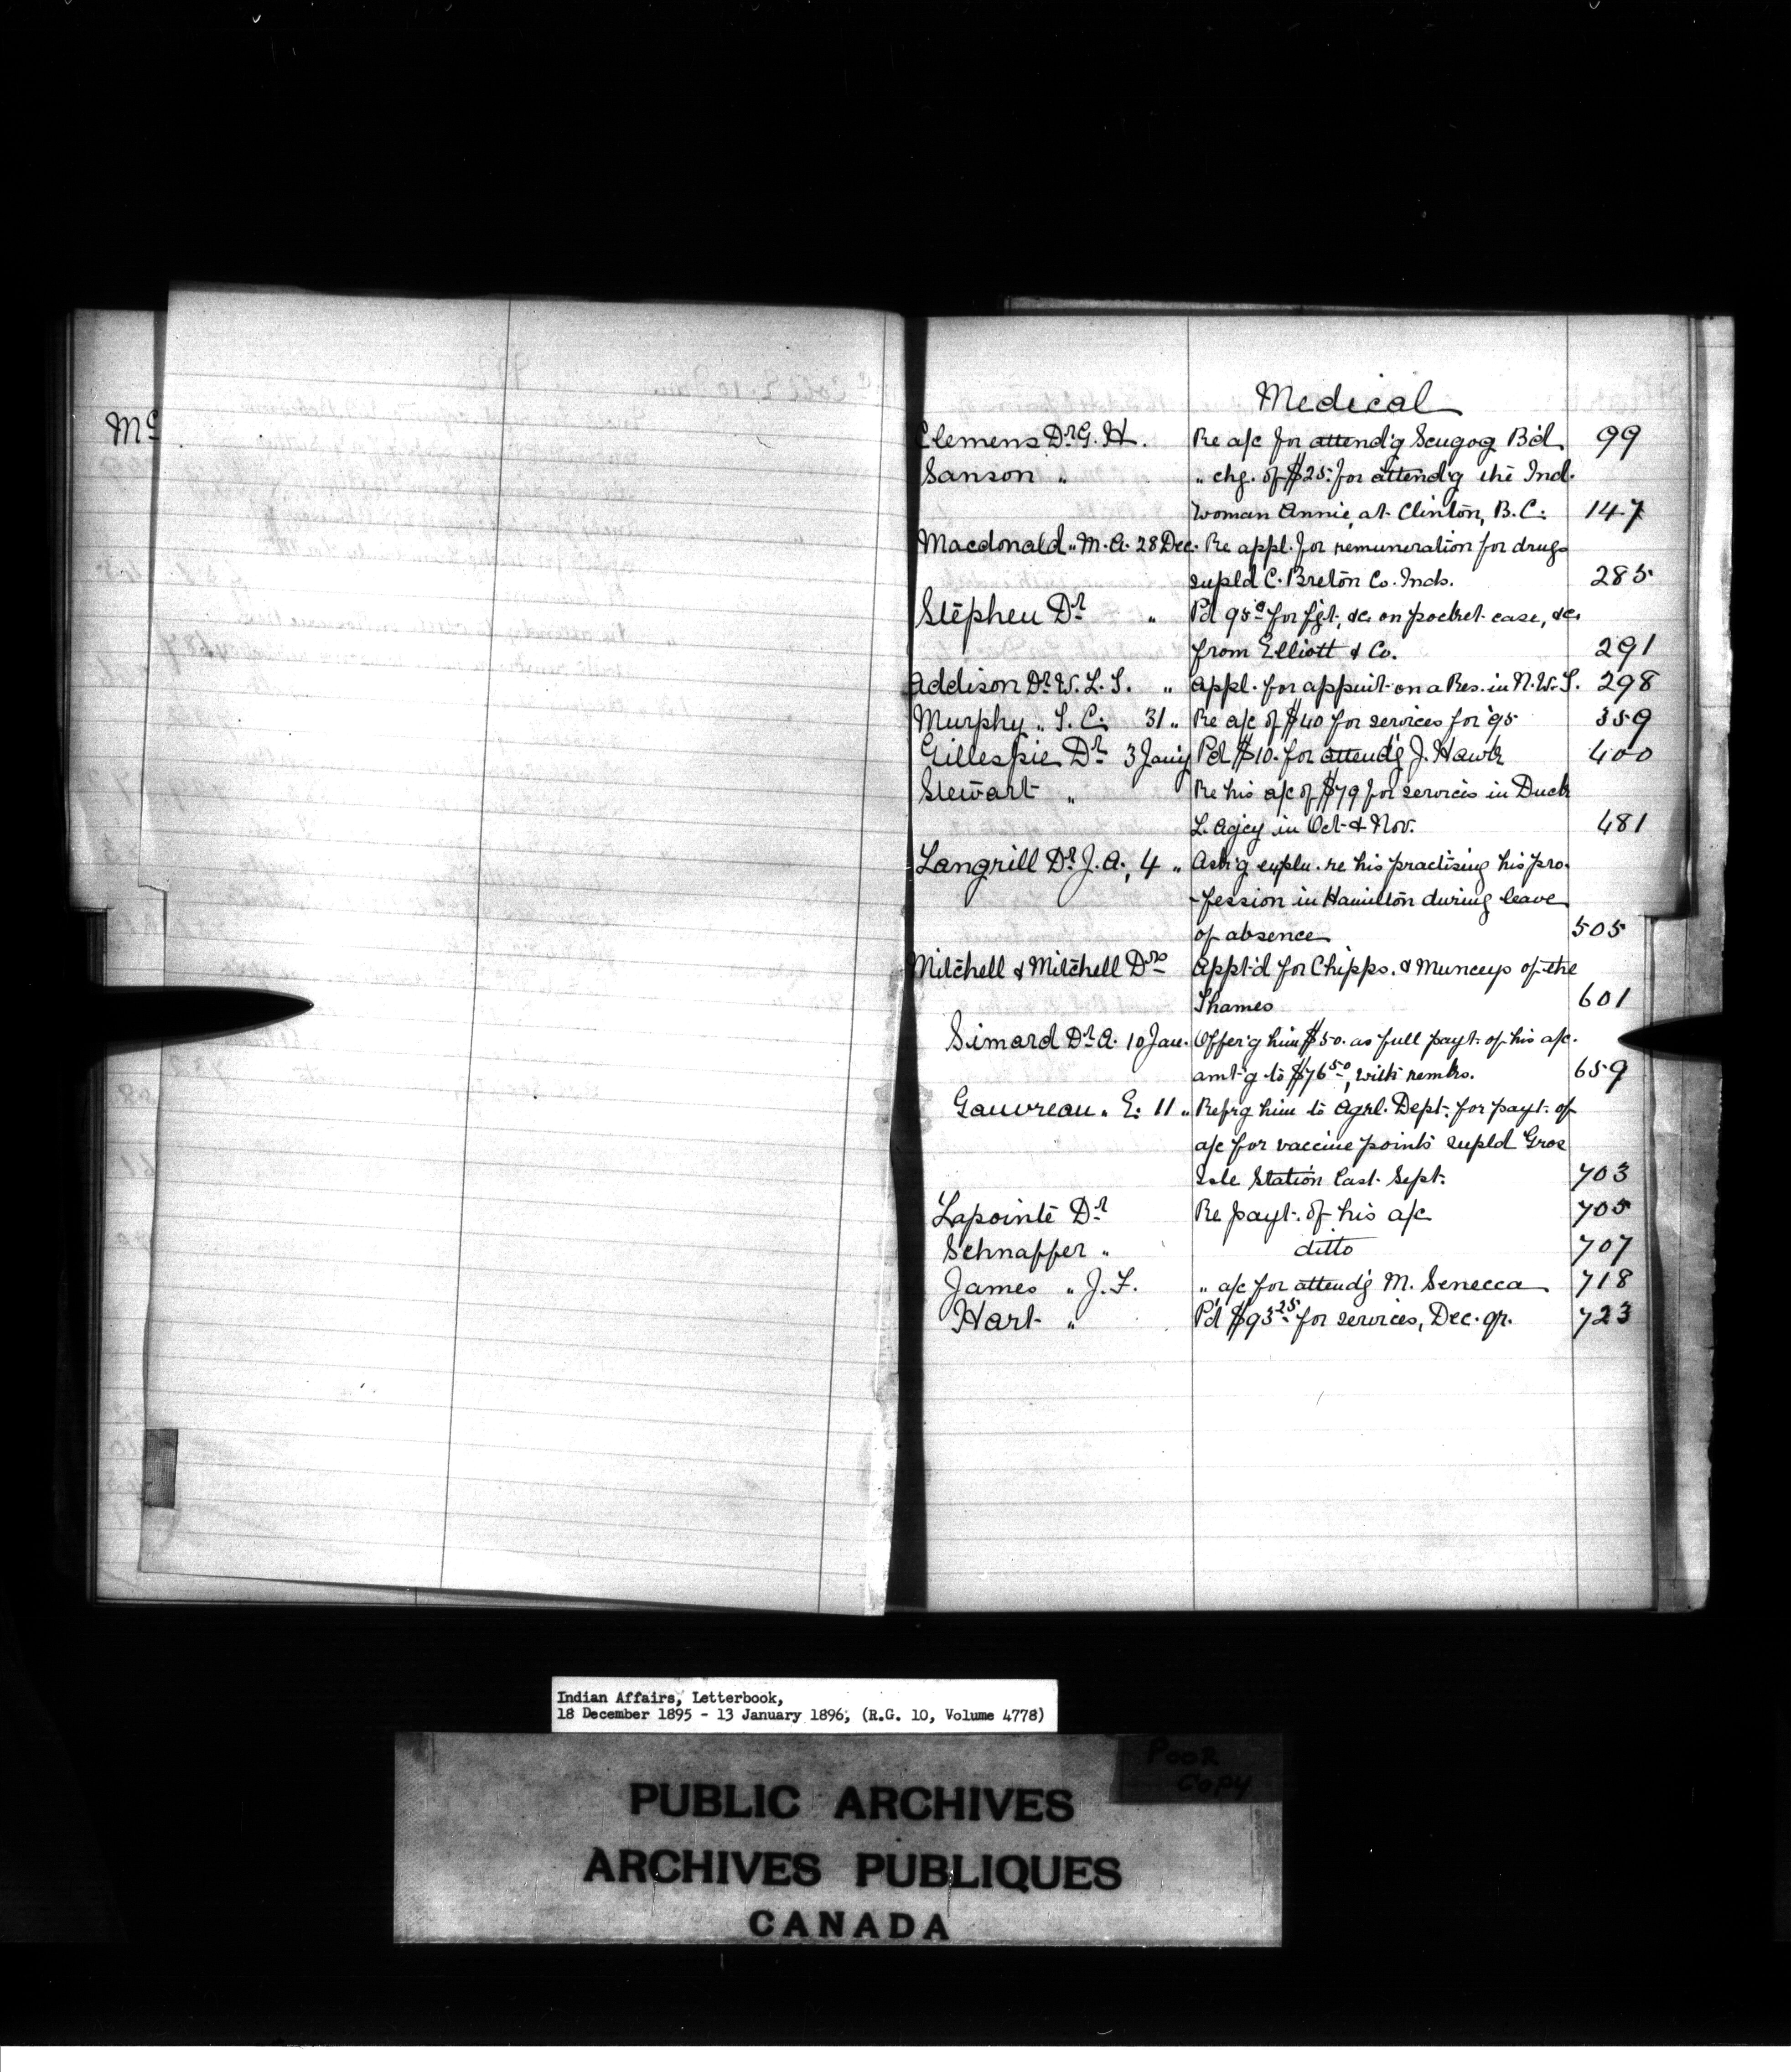 Mc
Medical
Clemens Dr G. H. Re a/c for attend'g Scugog B'd 99
Sanson " " chg. of $25. for attend'g the Ind.
Woman Annie, at Clinton, B.C. 147
Macdonald " M. A. 28 Dec. Re appl. for remuneration for drugs
supld C. Breton Co. Inds. 285
Stephen Dr " Pd 95c for fgt, &c. on pocket case, &c.
from Elliott & Co. 291
Addison Dr W. L. T. " Appl. for appmt on a Res. in N.W.T. 298
Murphy " T. C. 31 " Re a/c of $40 for services for '95 359
Gillespie Dr 3 Jan'y Pd $10. for attend'g J. Hawk 400
Stewart " Re his a/c of $79 for services in Duck
L. Agcy in Oct. & Nov. 481
Langrill Dr J. A., 4 " Ask'g expln. re his practising his pro-
-fession in Hamilton during leave
of absence 505
Mitchell & Mitchell Drs Appt'd for Chipps. & Munceys of the
Thames 601
Simard Dr A. 10 Jan. Offer'g him $50. as full payt. of his a/c.
amt'g to $76 50, with remks. 659
Gauvreau " E. 11 " Refrg him to Agrl. Dept. for payt. of
a/c for vaccine points supld Gros
Isle Station last Sept. 703
Lapointe Dr Re payt. of his a/c 705
Schnaffer " ditto 707
James " J. F. " a/c for attend'g M. Senecca 718
Hart " P'd $93 25 for services, Dec. qr. 723
Indian Affairs, Letterbook,
18 December 1895 - 13 January 1896, (R.G. 10, Volume 4778)
POOR
COPY
PUBLIC ARCHIVES
ARCHIVES PUBLIQUES
CANADA